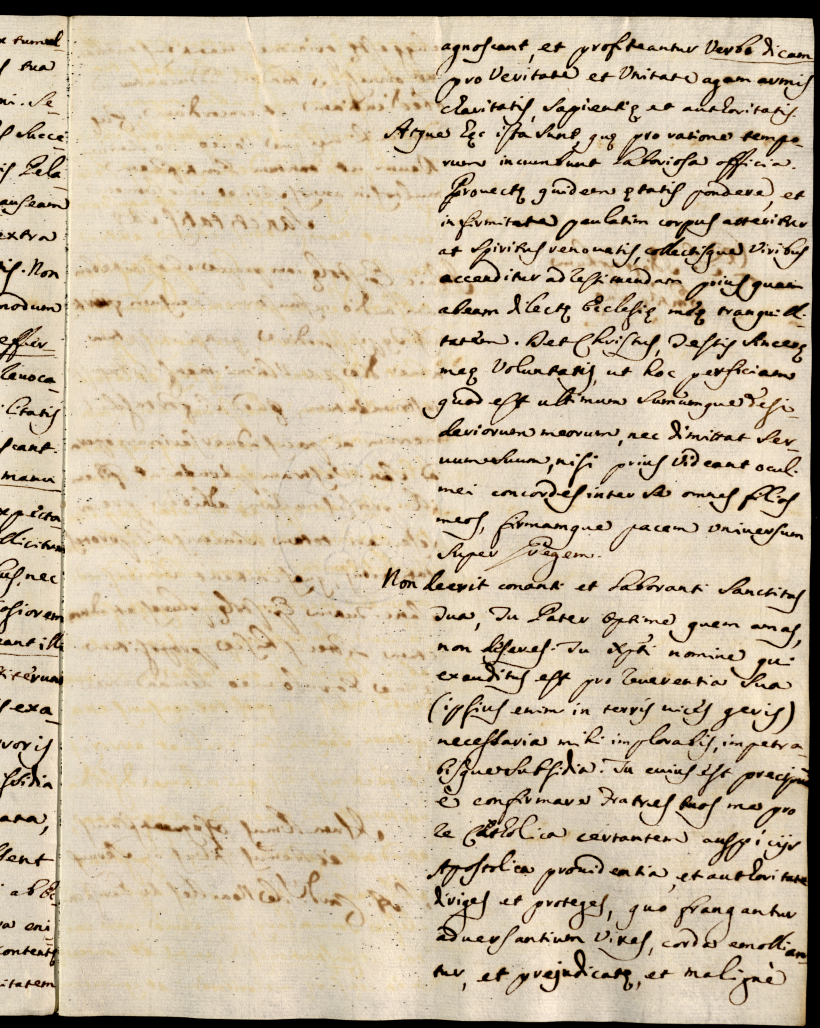 x tumul
s tua
ni. Se-
s succe
is Pela
auseam
extra
tis. Non
modum
effer-
Revoca-
litatis
scant.
manu
expecta
llicitum
us, nec
osiorem
eant ill
iterum
s exa-
voris
sidia
ata,
sent
abbe
ra eni
contentę
itatem
agnoscant, et profiteantur Verbo dicam
pro Veritate et Unitate agam armis
charitatis, sapientię et authoritatis.
Atque hęc ista sunt, quę pro ratione tempo-
rum incumbunt laboriosa officia.
Provectę quidem ętatis pondere, et
infirmitate paulatim corpus atteritur
at spiritus renovatis, collectisque Viribus
accenditur ad restituendam prius quam
abeam dilectę Ecclesię meę tranquilli-
tatem. Det Christus, testis sincerę
meę Voluntatis, ut hoc perficiam
quod est ultimum summumque desi-
deriorum meorum, nec dimittat ser-
vum suum, nisi prius videant oculi
mei concordes inter se omnes filios
meos, firmamque pacem universum
super gregem.
Non deerit conanti et laboranti Sanctitas
Tua, Tu Pater Optime quem amas,
non deseres. Tu Xpti nomine qui
exauditus est pro reverentia sua
(ipsius enim in terris vices geris)
necessaria mihi implorabis, impetra-
bisque subsidia. Tu cuius est precipuè
è confirmare Fratres tuos me pro
re Catholica certantem auspicijs
Apostolica providentia, et authoritate
diriges et proteges, quo frangantur
adversantium Vires, corda emollian-
tur, et prejudicatę, et malignè